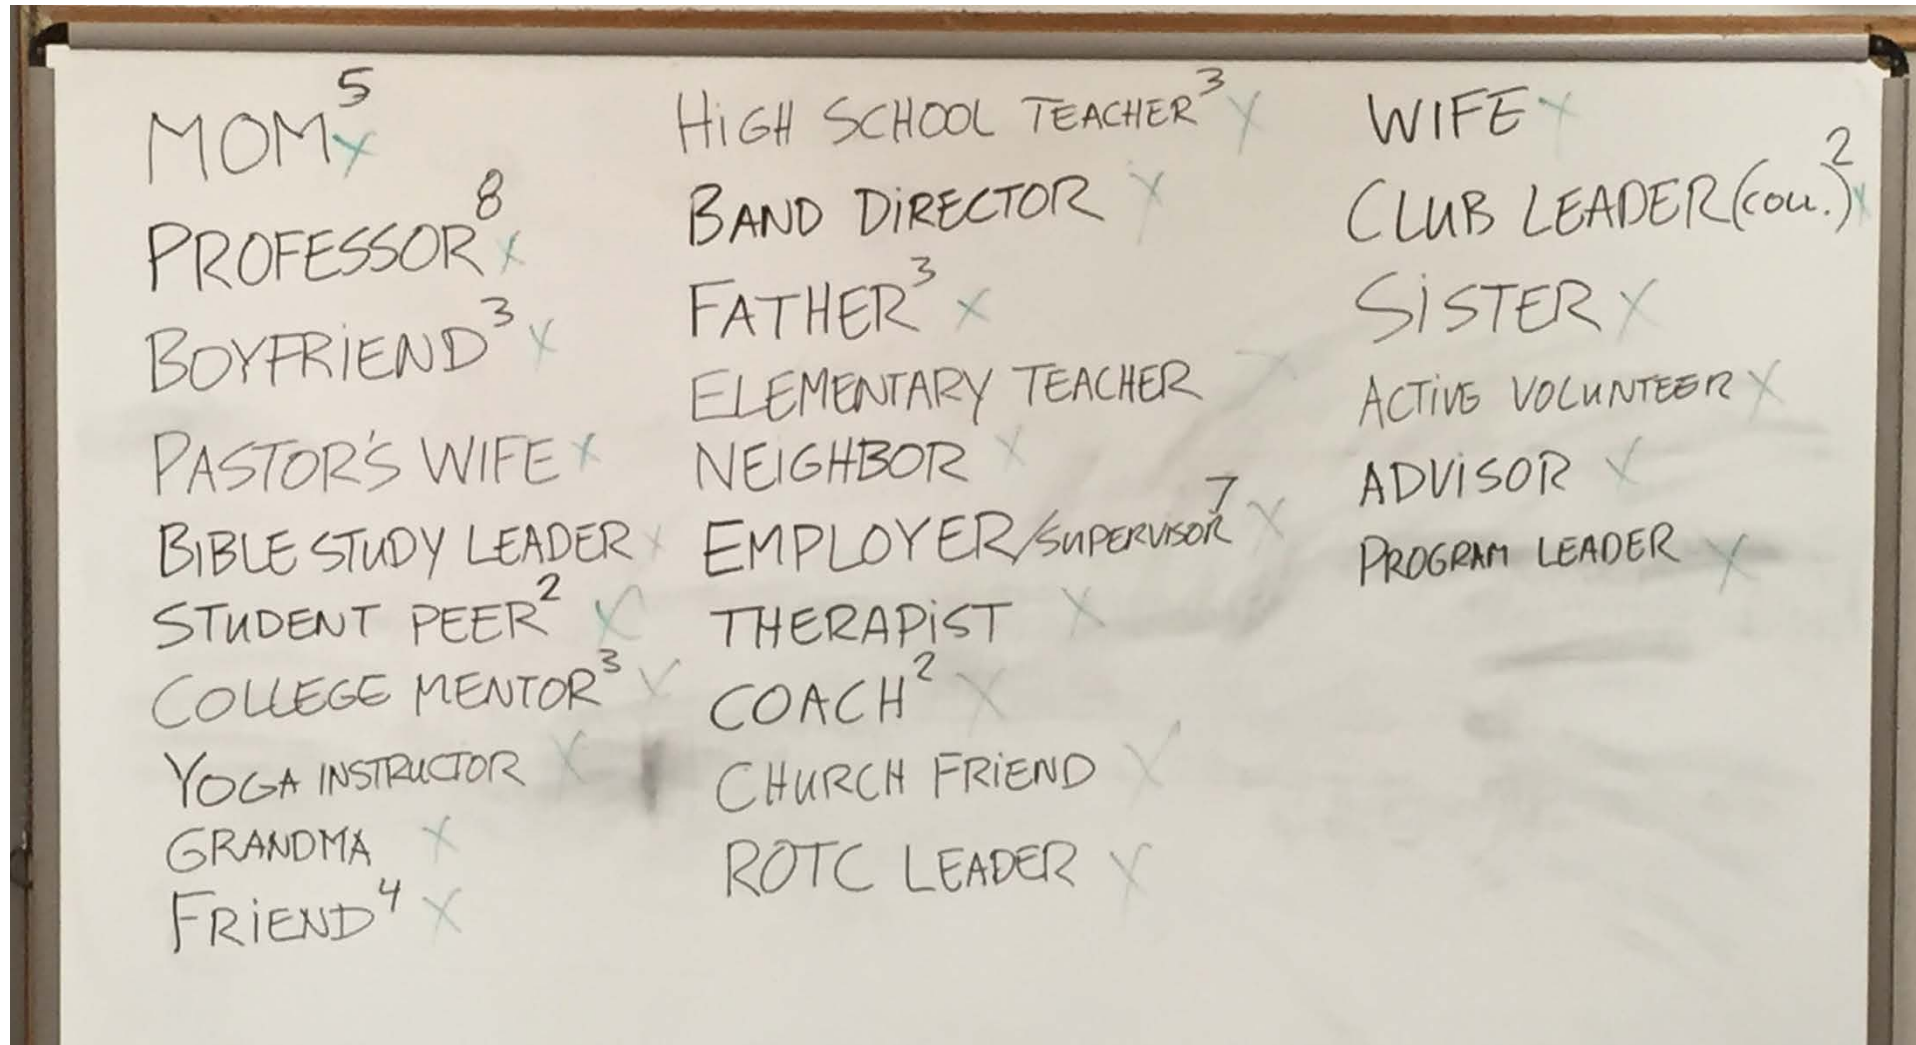 MOM⁵ x
PROFESSOR⁸ x
BOYFRIEND³ x
PASTOR'S WIFE x
BIBLE STUDY LEADER x
STUDENT PEER² x
COLLEGE MENTOR³ x
YOGA INSTRUCTOR x
GRANDMA x
FRIEND⁴ x
HIGH SCHOOL TEACHER³ x
BAND DIRECTOR x
FATHER³ x
ELEMENTARY TEACHER x
NEIGHBOR x
EMPLOYER/SUPERVISOR⁷ x
THERAPIST x
COACH² x
CHURCH FRIEND x
ROTC LEADER x
WIFE x
CLUB LEADER (COLL.)² x
SISTER x
ACTIVE VOLUNTEER x
ADVISOR x
PROGRAM LEADER x